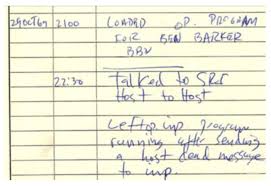 29OCT69 2100 LOADED OP. PROGRAM
FOR BEN BARKER
BBN
22:30 talked to SRI
Host to Host
Left op. imp program
running after sending
a host dead message
to imp.